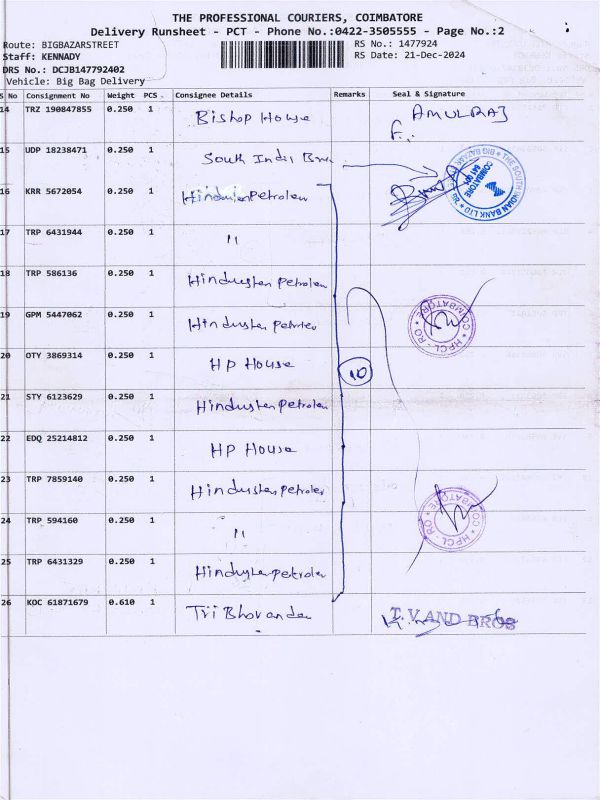 THE PROFESSIONAL COURIERS, COIMBATORE
Delivery Runsheet - PCT - Phone No.:0422-3505555 - Page No.:2
Route: BIGBAZARSTREET
RS No.: 1477924
Staff: KENNADY
RS Date: 21-Dec-2024
DRS No.: DCJB147792402
Vehicle: Big Bag Delivery
S No Consignment No Weight PCS Consignee Details Remarks Seal & Signature
14 TRZ 190847855 0.250 1 Bishop House AMULRAJ
F.
15 UDP 18238471 0.250 1 South Indi
THE SOUTH INDIAN BANK LTD BIG BAZAAR COIMBATORE
16 KRR 5672054 0.250 1
17 TRP 6431944 0.250 1 "
18 TRP 586136 0.250 1 Hindusten petrolem
19 GPM 5447062 0.250 1 Hindusten
HPCL - RO COIMBATORE
20 OTY 3869314 0.250 1 HP House
10
21 STY 6123629 0.250 1 Hindusten petrolem
22 EDQ 25214812 0.250 1 HP House
23 TRP 7859140 0.250 1 Hindusten petrolem
24 TRP 594160 0.250 1 "
HPCL - RO COIMBATORE
25 TRP 6431329 0.250 1 Hindusten petrolem
26 KOC 61871679 0.610 1 Tri Bhovandas T. V AND BROS